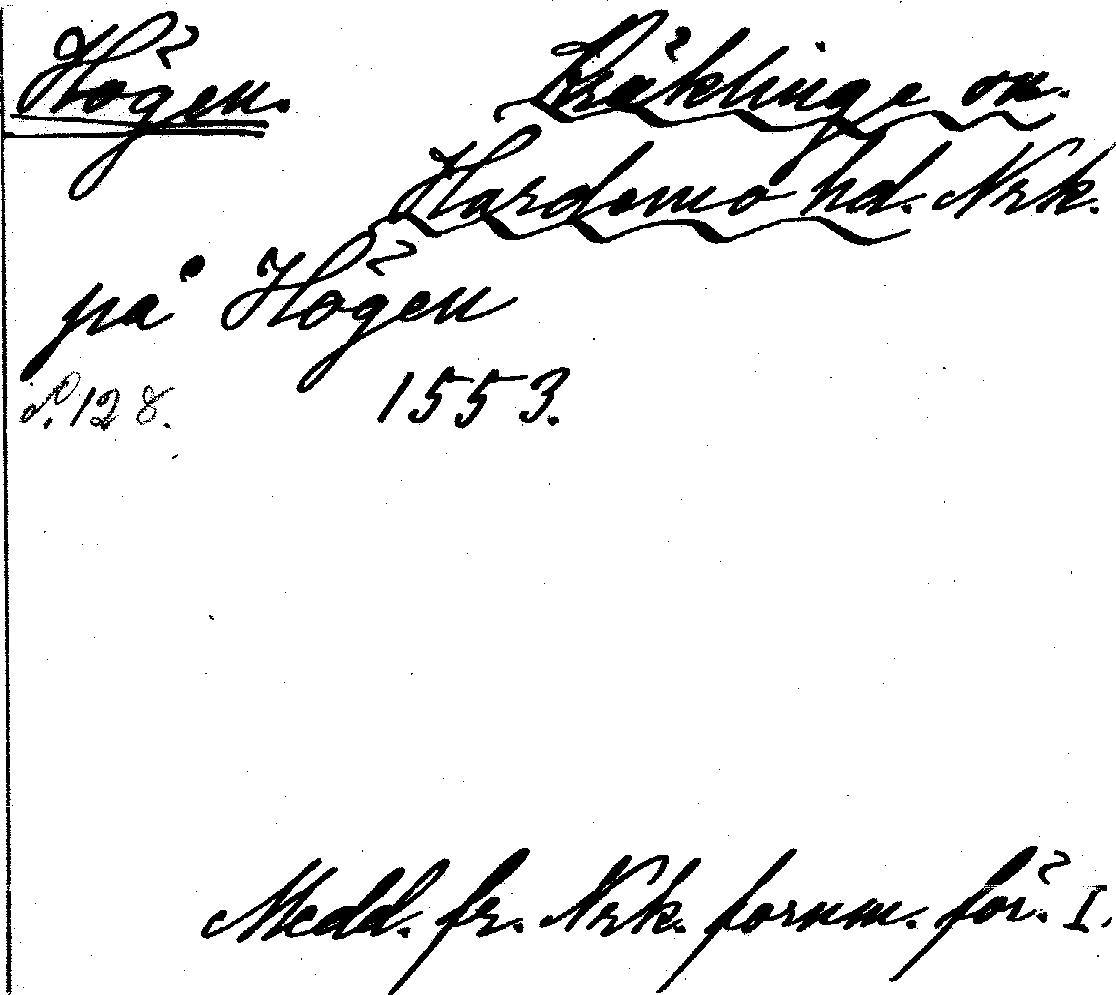 Högen. Kräklinge sn.
Hardemo hd. Nrk.
på Högen
S. 128. 1553.
Medd. fr. Nrk. fornm. för. I.